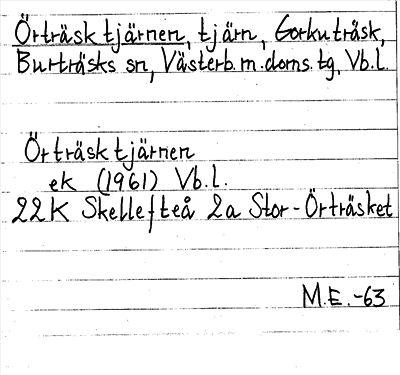 Örträsktjärnen, tjärn, Gorkuträsk,
Burträsks sn, Västerb. m. doms. tg, Vb.l.
Örträsktjärnen
ek (1961) Vb.l.
22K Skellefteå 2a Stor-Örträsket
M.E.-63